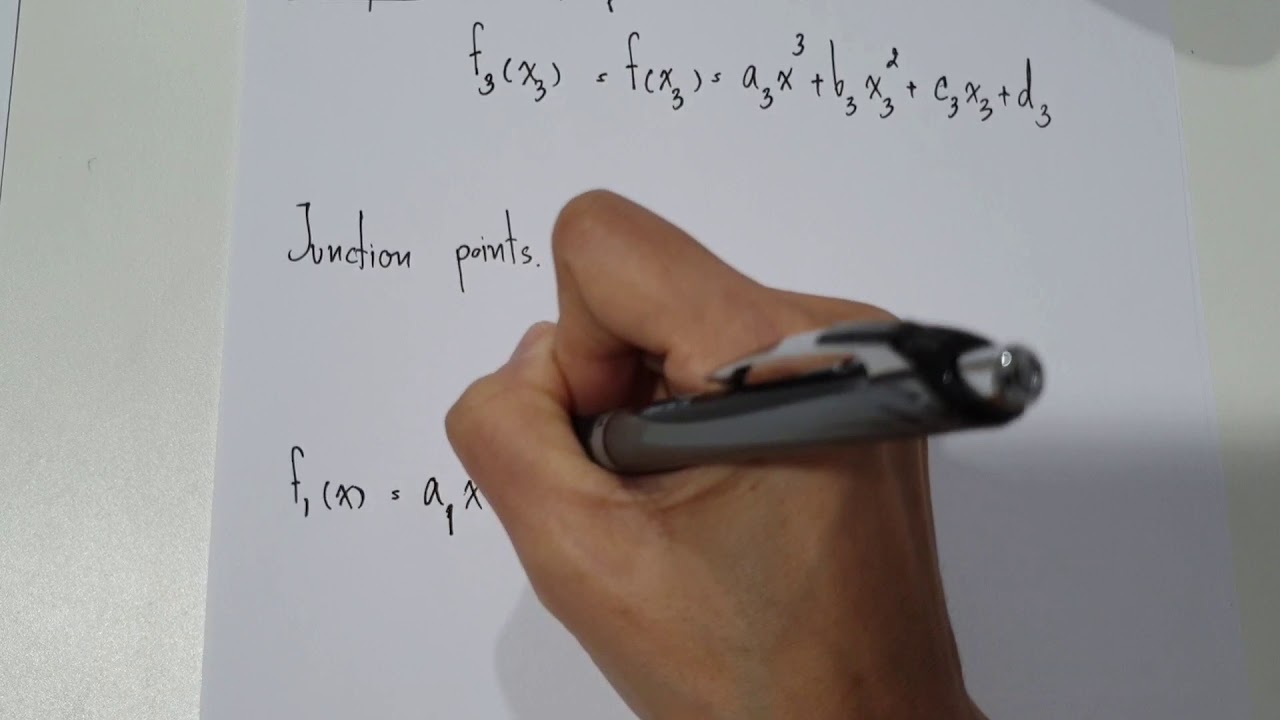 f₃(x₃) = f(x₃) = a₃x³ + b₃x₃² + c₃x₃ + d₃
Junction points.
f₁(x) = a₁x